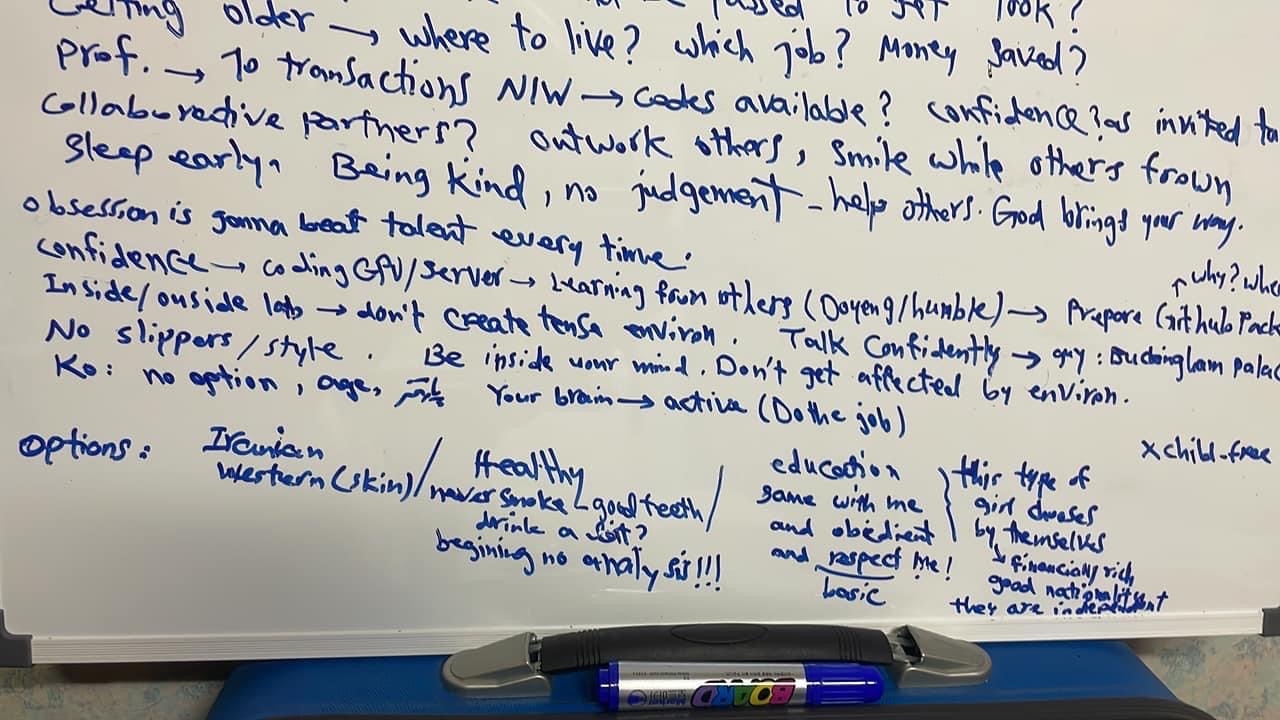 Getting older → where to live? which job? Money saved?
Prof. → 70 transactions NIW → codes available? confidence? as invited to
Collaboredive partners? outwork others, smile while others frown
Sleep early. Being kind, no judgement - help others. God brings your way.
obsession is gonna beat talent every time.
↑ why? whe
confidence → coding GPU/server → Learning from others (Doyeng/humble) → Prepare Github Pack
Inside/ouside lab → don't create tense environ. Talk Confidently → guy: Buckingham palac
No slippers/style. Be inside your mind. Don't get affected by environ.
Ko: no option, age, Your brain → active (Do the job)
x child-free
options: Iranian
Western (skin) /
Healthy
never smoke good teeth /
drink a lot?
begining no analysis!!!
education
same with me
and obedient
and respect me!
basic
this type of
girl chooses
by themselves
↳ financially rich
good nationality
they are independent
BOARD
Marker